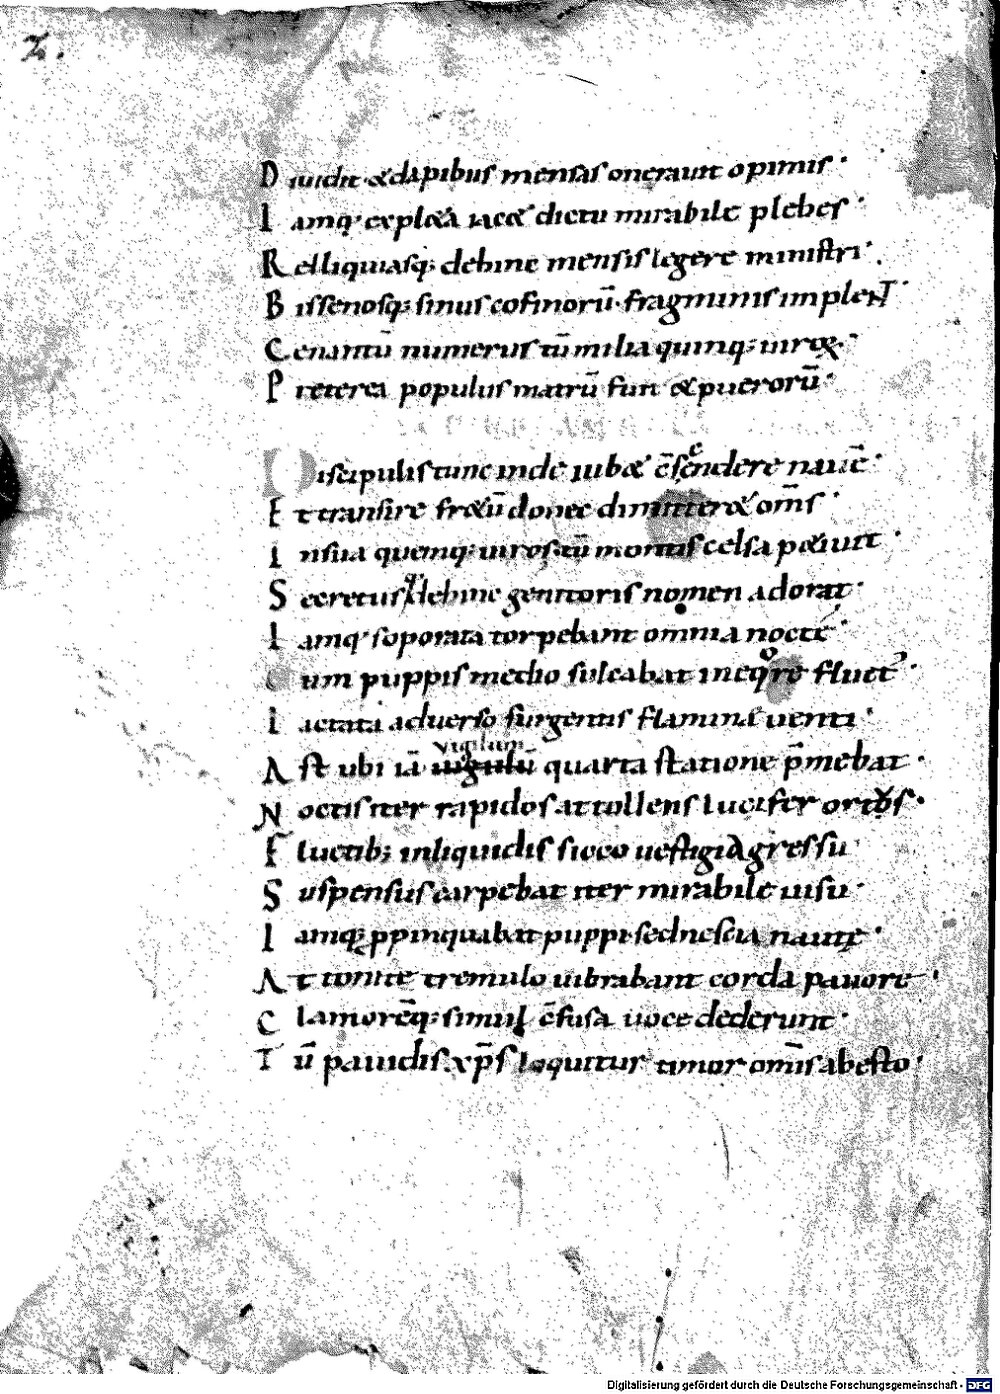 2.
Diuidit & dapibus mensas onerant opimis·
Iamq; expl&a iac& dictu mirabile plebes·
Relliquiasq; dehinc mensis legere ministri·
Bissenosq; sinus cofinorū fragminis implent·
Cenantū numerus tū milia quinq; uirọꝝ·
Preterea populus matrū fuit & puerorū·
Discipulis tunc inde iub& c̄scendere nauē·
Et transire fr&ū donec dimitter& om̄s·
Insua quemq; uiros tū montis celsa p&iuit·
Secretus dehinc genitoris nomen adorat·
Iamq; soporata torpebant omnia nocte·
Cum puppis medio sulcabat in eqore fluct᾿·
Iactata aduerso surgentis flamina uenti·
uigilum
Ast ubi iā uigulū quarta statione p̄mebat·
Noctis iter rapidos attollens lucifer ortus·
Fluctib; inliquidis sicco uestigia gressu·
Suspensus carpebat iter mirabile uisu·
Iamq; ꝓpinquabat puppi sed nescia nautę·
Attonite tremulo uibrabant corda pauore·
Clamorēq; simul c̄fusa uoce dederunt·
Tū pauidis xp̄s loquitur timor om̄is abesto·
Digitalisierung gefördert durch die Deutsche Forschungsgemeinschaft - DFG